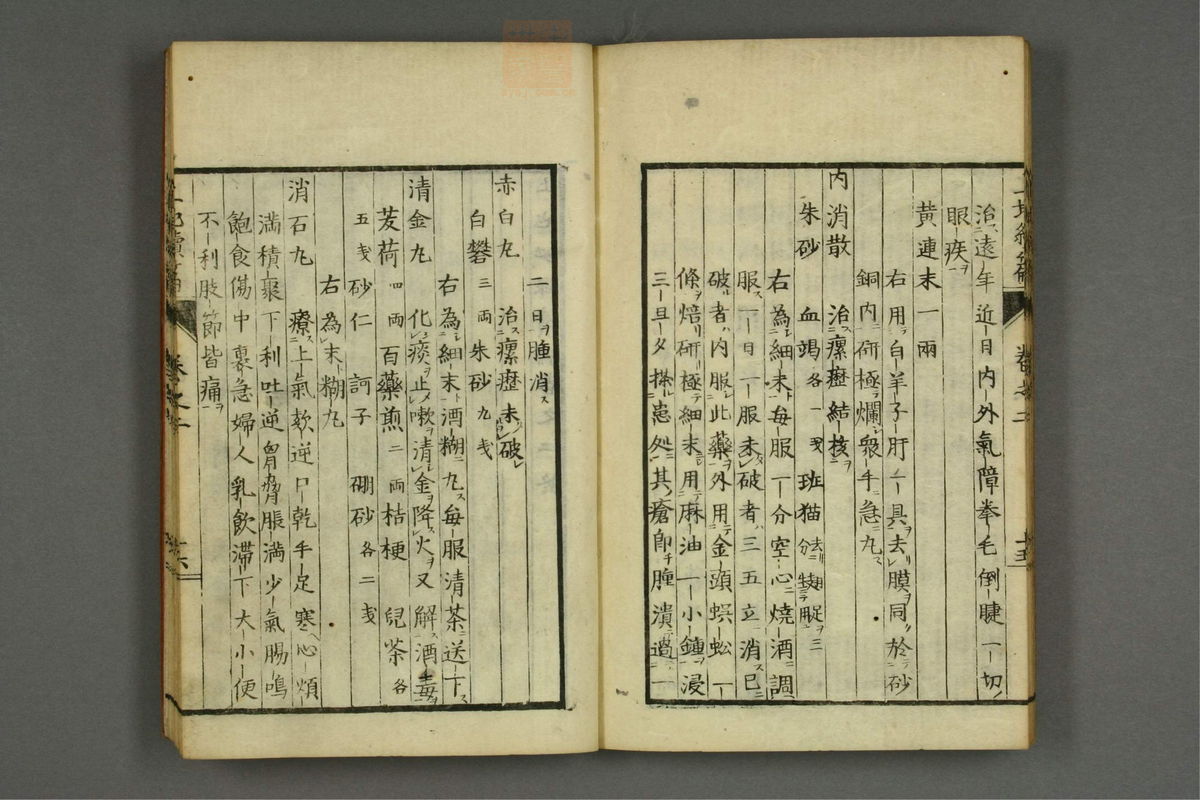 治遠年近日内外氣障拳毛倒睫一切
眼疾
黄連末一兩
右用白羊子肝一具去膜同於砂
銅内研極爛衆手急丸
内消散　治瘰癧結核
朱砂　血竭各一戔　班猫三分去翅足
右為細末每服一分空心燒酒調
服一日一服未破者三五立消已
破者内服此藥外用金頭蜈蚣一
條焙研極細末用麻油一小鍾浸
三旦夕搽患処其瘡即腫潰過一
二日腫消
赤白丸　治瘰癧未破
白礬三兩　朱砂九戔
右為細末酒糊丸每服清茶送下
清金丸　化痰止嗽清金降火又解酒毒
芰荷四兩　百藥煎二兩　桔梗　兒茶各
五戔　砂仁　訶子　硼砂各二戔
右為末糊丸
消石丸　療上氣欬逆口乾手足寒心煩
満積聚下利吐逆胃脅脹満少氣腸鳴
飽食傷中裏急婦人乳飲滯下大小便
不利肢節皆痛